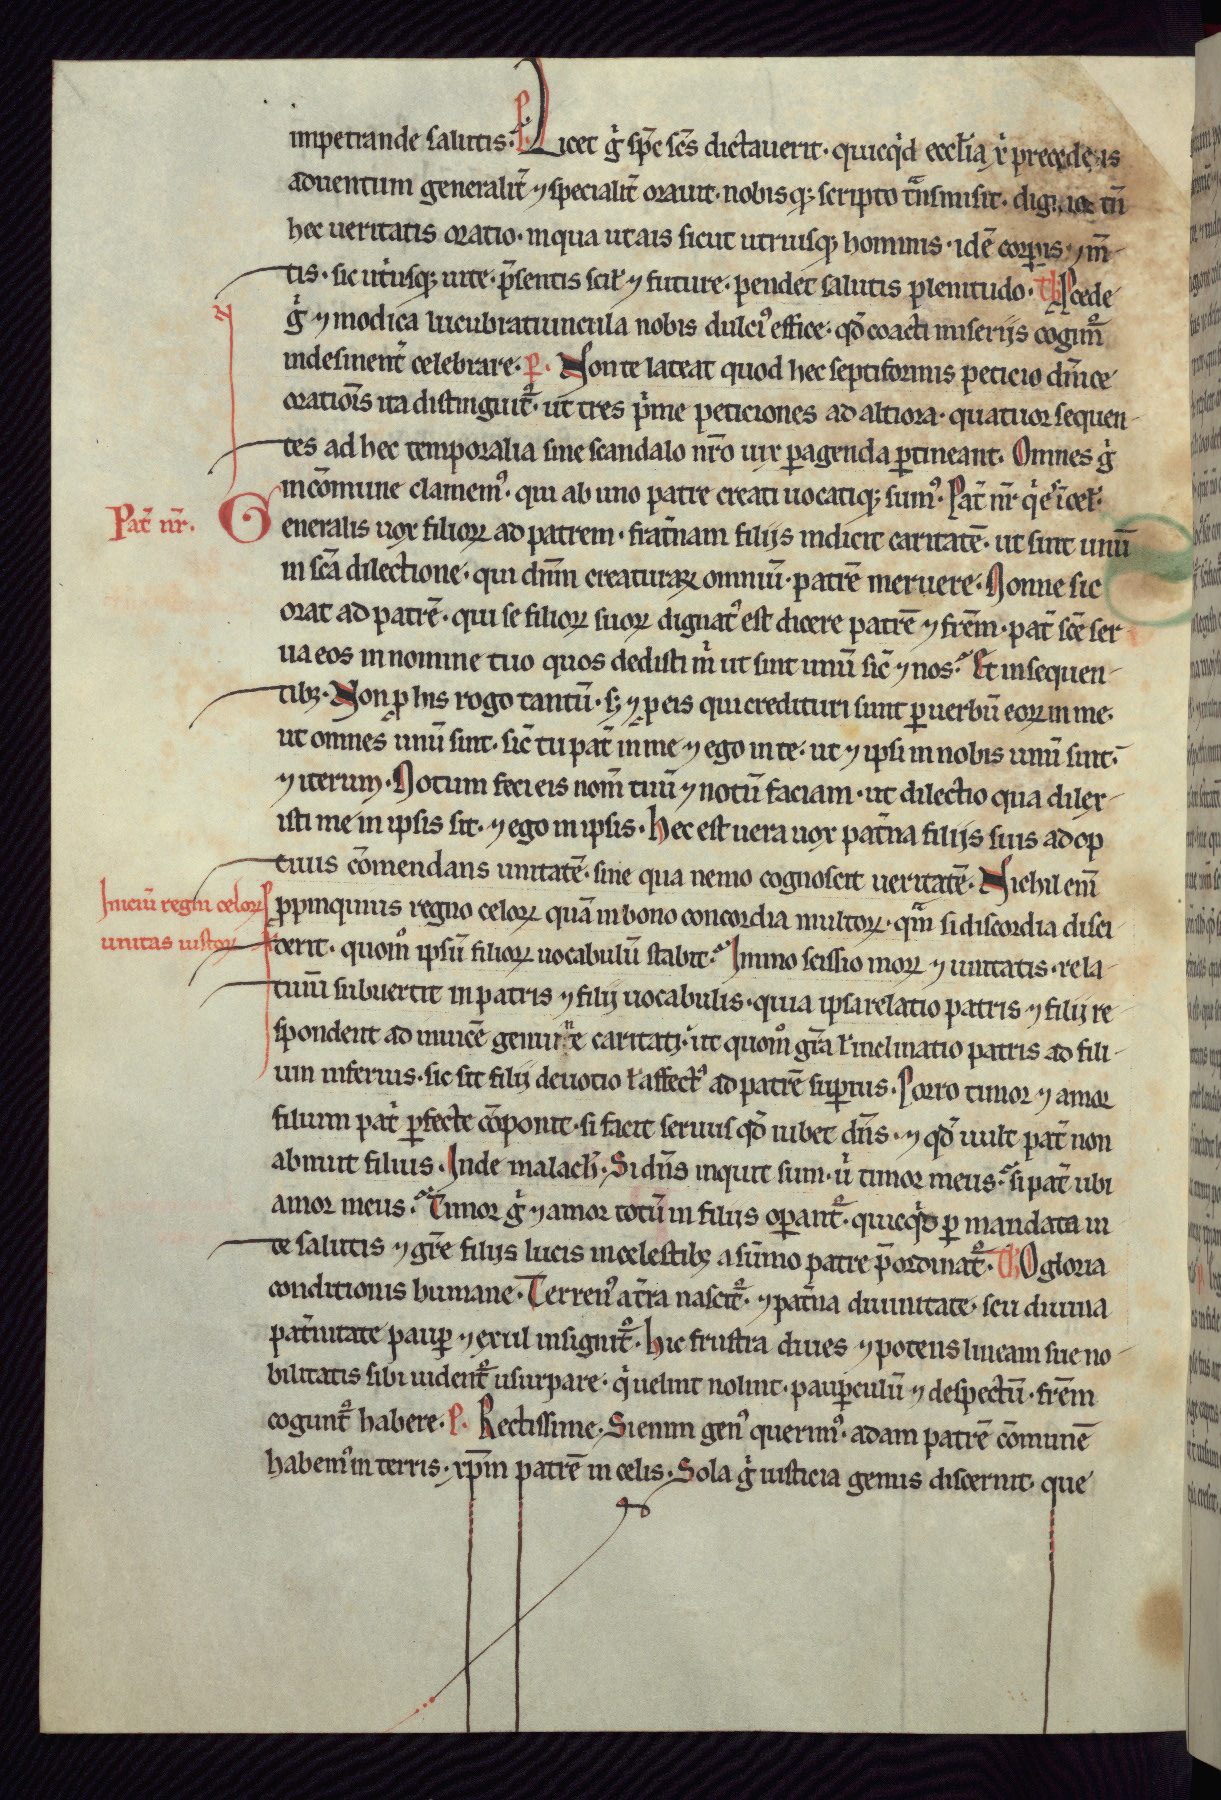 impetrande salutis. P. Licet g̊ sp̄c sc̄s dictauerit. quicq̇d eccl̄ia xp̄i precedens
aduentum generalit̄ ⁊ specialit̄ orauit. nobisqꝫ scripto t̄nsmisit. dignior tn̄
hec ueritatis oratio. in qua ut ais sicut utriusqꝫ hominis. idē corporis ⁊ m̄
tis. sic ut̓usqꝫ uite. p̄sentis scil̄ ⁊ future. pendet salutis plenitudo. Th Procede
g̊ ⁊ modica lucubratiuncula nobis dulciꝰ effice. qđ coacti miserijs cogimr̄
indesinent̄ celebrare. p. Non te lateat quod hec septiformis peticio dn̄ice
orationis ita distinguit̄. ut tres p̓me peticiones ad altiora. quatuor sequen
tes ad hec temporalia sine scandalo nr̄o uix ꝑagenda ꝑtineant. Omnes g̊
in cōmune clamemꝰ. qui ab uno patre creati uocatiqꝫ sumꝰ. Pat̄ nr̄ q̓ es ī cel̄.
Pat̄ nr̄.
Generalis uox filioꝝ ad patrem. frat̄nam filijs indicit caritatē. ut sint unū
in sc̄a dilectione. qui dn̄m creaturaꝝ omniū. patrē meruere. Nonne sic
orat ad patrē. qui se filioꝝ suoꝝ dignatꝰ est dicere patrē ⁊ fr̄em. pat̄ sc̄e ser
ua eos in nomine tuo quos dedisti m̓ ut sint unū sic̄ ⁊ nos. Et in sequen
tibꝫ. Non ꝓ his rogo tantū. sꝫ ⁊ ꝓ eis qui credituri sunt ꝑ uerbū eoꝝ in me.
ut omnes unū sint. sic̄ tu pat̄ in me ⁊ ego in te. ut ⁊ ipsi in nobis unū sint.
⁊ iterum. Notum feci eis nom̄ tuū ⁊ notū faciam. ut dilectio qua dilex
isti me in ipsis sit. ⁊ ego in ipsis. Hec est uera uox pat̄na filijs suis adop
tiuis cōmendans unitatē. sine qua nemo cognoscit ueritatē. Nichil enī
Iniciū regni celoꝝ
unitas iustoꝝ
ꝓpinquius regno celoꝝ quā in bono concordia multoꝝ. qm̄ si discordia disci
derit. quom̊ ipsū filioꝝ uocabulū stabit. Immo scissio moꝝ ⁊ unitatis. rela
tiuū subuertit in patris ⁊ filij uocabulis. quia ipsa relatio patris ⁊ filij re
spondent ad inuicē gemine caritati. ut quom̊ gr̄a ł inclinatio patris ad fili
um inferius. sic sit filij deuotio ł affectꝰ ad patrē superius. Porro timor ⁊ amor
filium pat̓ ꝑfecte cōponit. si facit seruus qđ iubet dn̄s. ⁊ qđ uult pat̄ non
abnuit filius. Inde malach̄. Si dn̄s inquit sum. u̓ timor meus. si pat̄ ubi
amor meus. Timor g̊ ⁊ amor totū in filijs oꝑant̄. quicq̇d ꝑ mandata ui
te salutis ⁊ gr̄e filijs lucis in celestibꝫ a sūmo patre p̄ordinat̄. Th O gloria
conditionis humane. Terrenꝰ a t̄ra nascit̄. ⁊ pat̄na diuinitate. seu diuina
pat̄nitate pauꝑ ⁊ exul insignit̄. hic frustra diues ⁊ potens lineam sue no
bilitatis sibi uident̄ usurpare. q̓ uelint nolint. pauꝑculū ⁊ despectū. fr̄em
cogunt̄ habere. P. Rectissime. Si enim genꝰ querimꝰ. adam patrē cōmunē
habemꝰ in terris. xp̄m patrē in celis. Sola g̊ iusticia genus discernit. que